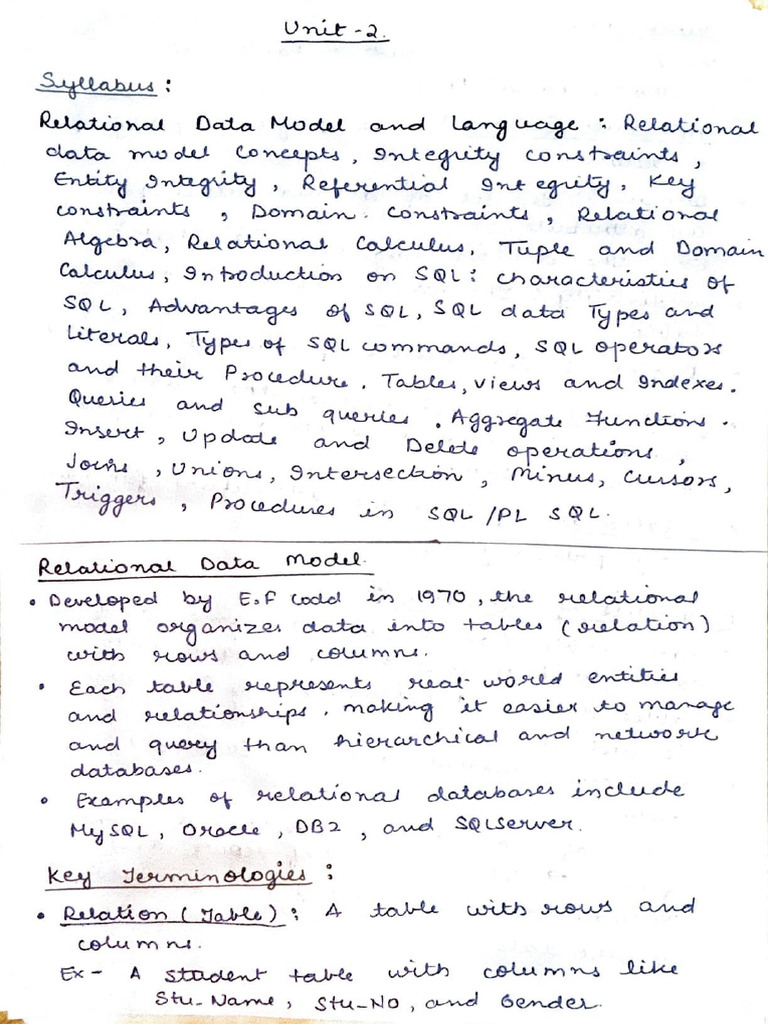 Unit-2.
Syllabus :
Relational Data Model and Language : Relational
data model Concepts, Integrity constraints,
Entity Integrity, Referential Integrity, Key
constraints, Domain. Constraints, Relational
Algebra, Relational Calculus. Tuple and Domain
Calculus, Introduction on SQL : characteristics of
SQL, Advantages of SQL, SQL data Types and
Literals, Types of SQL commands, SQL operators
and their Procedure. Tables, views and Indexes.
Queries and sub queries. Aggregate Functions.
Insert, Update and Delete operations,
Joins, Unions, Intersection, Minus, Cursors,
Triggers, Procedures in SQL /PL SQL.
Relational Data Model.
• Developed by E.F Codd in 1970, the relational
model organizes data into tables (relation)
with rows and columns.
• Each table represents real-world entities
and relationships. making it easier to manage
and query than hierarchical and network
databases.
• Examples of relational databases include
MySQL, Oracle, DB2, and SQLServer.
Key Terminologies :
• Relation (Table) : A table with rows and
columns.
Ex- A student table with columns like
Stu-Name, Stu-NO, and Gender.